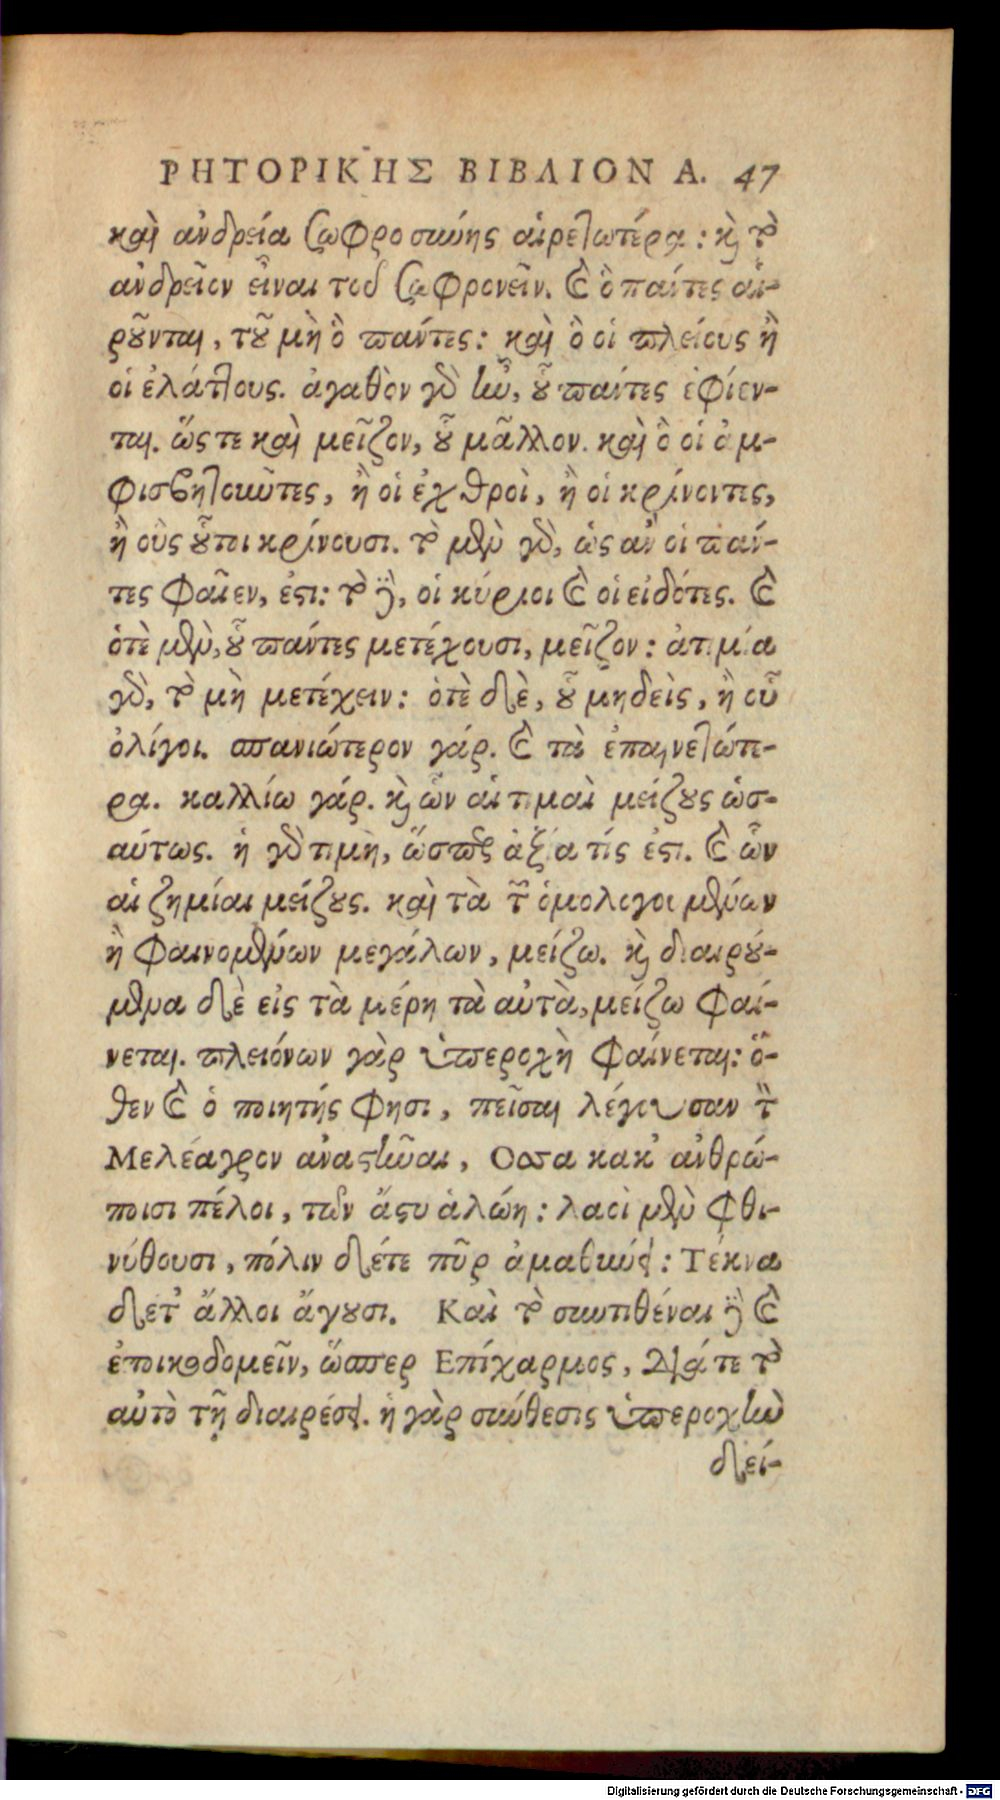 ΡΗΤΟΡΙΚΗΣ ΒΙΒΛΙΟΝ Α. 47
καὶ ἀνδρεία σωφροσύνης αἱρετωτέρα: καὶ τὸ
ἀνδρεῖον εἶναι τοῦ σωφρονεῖν. καὶ ὃ πάντες αἱ-
ροῦνται, τοῦ μὴ ὃ πάντες: καὶ ὃ οἱ πλείους ἢ
οἱ ἐλάττους. ἀγαθὸν γὰρ ἦν, οὗ πάντες ἐφίεν-
ται. ὥς τε καὶ μεῖζον, οὗ μᾶλλον. καὶ ὃ οἱ ἀμ-
φισβητοῦντες, ἢ οἱ ἐχθροὶ, ἢ οἱ κρίνοντες,
ἢ οὓς οὗτοι κρίνουσι. τὸ μὲν γὰρ, ὡς ἂν οἱ πάν-
τες φαῖεν, ἐστι: τὸ δὲ, οἱ κύριοι καὶ οἱ εἰδότες. καὶ
ὁτὲ μὲν, οὗ πάντες μετέχουσι, μεῖζον: ἀτιμία
γὰρ, τὸ μὴ μετέχειν: ὁτὲ δὲ, οὗ μηδεὶς, ἢ οὗ
ὀλίγοι. σπανιώτερον γάρ. καὶ τὰ ἐπαινετώτε-
ρα. καλλίω γάρ. καὶ ὧν αἱ τιμαὶ μείζους ὡσ-
αύτως. ἡ γὰρ τιμὴ, ὥσπερ ἀξία τίς ἐστι. καὶ ὧν
αἱ ζημίαι μείζους. καὶ τὰ τῶν ὁμολογουμένων
ἢ φαινομένων μεγάλων, μείζω. καὶ διαιρού-
μενα δὲ εἰς τὰ μέρη τὰ αὐτὰ, μείζω φαί-
νεται. πλειόνων γὰρ ὑπεροχὴ φαίνεται: ὅ-
θεν καὶ ὁ ποιητής φησι, πεῖσαι λέγουσαν τὸν
Μελέαγρον ἀναστῆναι, Οσσα κακ' ἀνθρώ-
ποισι πέλοι, τῶν ἄστυ ἁλώῃ: λαοὶ μὲν φθι-
νύθουσι, πόλιν δέτε πῦρ ἀμαθύνει: Τέκνα
δέτ' ἄλλοι ἄγουσι. Καὶ τὸ συντιθέναι δὲ καὶ
ἐποικοδομεῖν, ὥσπερ Επίχαρμος, διά τε τὸ
αὐτὸ τῇ διαιρέσει. ἡ γὰρ σύνθεσις ὑπεροχὴν
δεί-
Digitalisierung gefördert durch die Deutsche Forschungsgemeinschaft - DFG